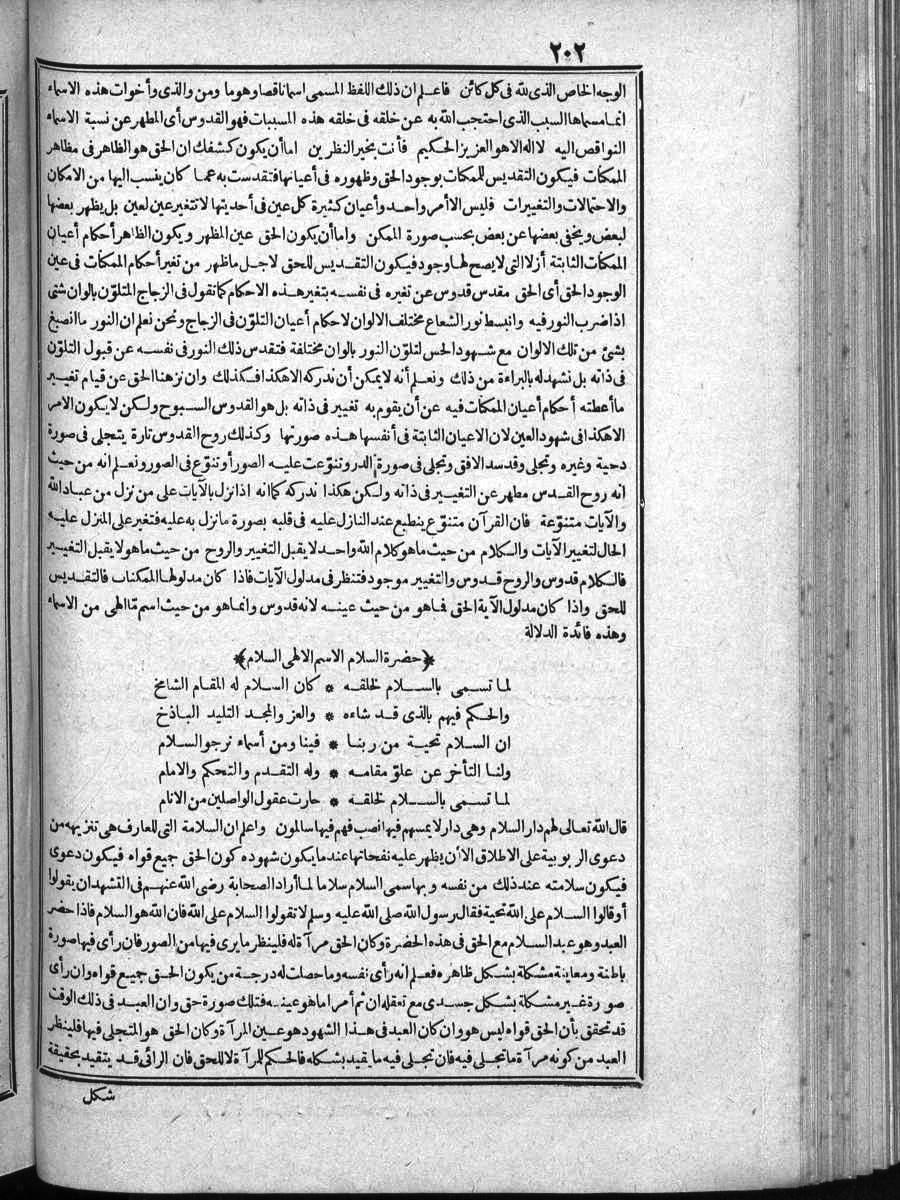 ٢٠٢
الوجه الخاص الذى لله فى كل كائن فاعلم ان ذلك اللفظ المسمى اسما ناقصا وهو ما ومن والذى وأخوات هذه الاسماء
انما مسماها السبب الذى احتجب الله به عن خلقه فى خلقه هذه المسببات فهو القدوس أى المطهر عن نسبة الاسماء
النواقص اليه لااله الاهو العزيز الحكيم فأنت بخير النظرين اما أن يكون كشفك ان الحق هو الظاهر فى مظاهر
الممكنات فيكون التقديس للممكنات بوجود الحق وظهوره فى أعيانها فتقدست به عما كان ينسب اليها من الامكان
والاحتمالات والتغييرات فليس الا أمر واحد وأعيان كثيرة كل عين فى أحديتها لا تتغير عين لعين بل يظهر بعضها
لبعض ويخفى بعضها عن بعض بحسب صورة الممكن واما أن يكون الحق عين المظهر ويكون الظاهر أحكام أعيان
الممكنات الثابتة أزلا التى لا يصح لها وجود فيكون التقديس للحق لاجل ما ظهر من تغير أحكام الممكنات فى عين
الوجود الحق أى الحق مقدس قدوس عن تغيره فى نفسه بتغير هذه الاحكام كما تقول فى الزجاج المتلوّن بالوان شتى
اذا ضرب النور فيه وانبسط نور الشعاع مختلف الالوان لاحكام أعيان التلوّن فى الزجاج ونحن نعلم ان النور ما انصبغ
بشئ من تلك الالوان مع شهود الحس لتلوّن النور بالوان مختلفة فتقدس ذلك النور فى نفسه عن قبول التلوّن
فى ذاته بل نشهد له بالبراءة من ذلك ونعلم أنه لا يمكن أن ندركه الا هكذا فكذلك وان نزهنا الحق عن قيام تغيير
ما أعطته أحكام أعيان الممكنات فيه عن أن يقوم به تغيير فى ذاته بل هو القدوس السبوح ولكن لا يكون الامر
الا هكذا فى شهود العين لان الاعيان الثابتة فى أنفسها هذه صورتها وكذلك روح القدوس تارة يتجلى فى صورة
دحية وغيره وتجلى وقد سد الافق وتجلى فى صورة الدر وتنوّعت عليه الصور أو تنوّع فى الصور ونعلم انه من حيث
انه روح القدس مطهر عن التغيير فى ذاته ولكن هكذا ندركه كما انه اذا نزل بالآيات على من نزل من عباد الله
والآيات متنوّعة فان القرآن متنوّع ينطبع عند النازل عليه فى قلبه بصورة ما نزل به عليه فتغير على المنزل عليه
الحال لتغيير الآيات والكلام من حيث ما هو كلام الله واحد لا يقبل التغيير والروح من حيث ما هو لا يقبل التغيير
فالكلام قدوس والروح قدوس والتغيير موجود فتنظر فى مدلول الآيات فاذا كان مدلولها الممكنات فالتقديس
للحق واذا كان مدلول الآية الحق فما هو من حيث عينه لانه قدوس وانما هو من حيث اسم مّا الهى من الاسماء
وهذه فائدة الدلالة
﴿حضرة السلام الاسم الالهى السلام﴾
لما تسمى بالسلام لخلقه * كان السلام له المقام الشامخ
والحكم فيهم بالذى قد شاءه * والعز والمجد التليد الباذخ
ان السلام تحية من ربنا * فينا ومن أسماء نرجو السلام
ولنا التأخر عن علوّ مقامه * وله التقدم والتحكم والامام
لما تسمى بالسلام لخلقه * حارت عقول الواصلين من الانام
قال الله تعالى لهم دار السلام وهى دار لا يمسهم فيها نصب فهم فيها سالمون واعلم ان السلامة التى للعارف هى تنزيهه من
دعوى الربوبية على الاطلاق الا أن يظهر عليه نفحاتها عند ما يكون شهوده كون الحق جميع قواه فيكون دعوى
فيكون سلامته عند ذلك من نفسه وبها سمى السلام سلاما لما أراد الصحابة رضى الله عنهم فى التشهد ان يقولوا
أو قالوا السلام على الله تحية فقال رسول الله صلى الله عليه وسلم لا تقولوا السلام على الله فان الله هو السلام فاذا حضر
العبد وهو عبد السلام مع الحق فى هذه الحضرة وكان الحق مرآة له فلينظر ما يرى فيها من الصور فان رأى فيها صورة
باطنة ومعاينة مشكلة بشكل ظاهره فعلم انه رأى نفسه وما حصلت له درجة من يكون الحق جميع قواه وان رأى
صورة غير مشكلة بشكل جسدى مع تعقله ان ثم أمرا ما هو عينه فتلك صورة حق وان العبد فى ذلك الوقت
قد تحقق بأن الحق قواه ليس هو وان كان العبد فى هذا الشهود هو عين المرآة وكان الحق هو المتجلى فيها فلينظر
العبد من كونه مرآة ما تجلى فيه فان تجلى فيه ما يقيد بشكله فالحكم للمرآة لا للحق فان الرائى قد يتقيد بحقيقة
شكل